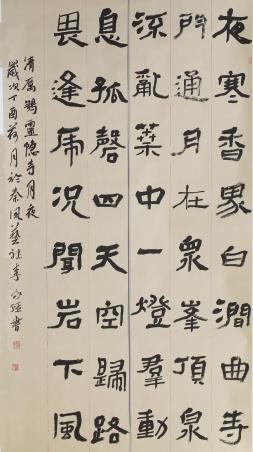 夜寒香界白澗曲寺
門通月在衆峯頂泉
流亂葉中一燈羣動
息孤磬四天空歸路
畏逢虎況聞岩下風
清厲鶚靈隐寺月夜
歲次丁酉荷月於秦風藝社李書